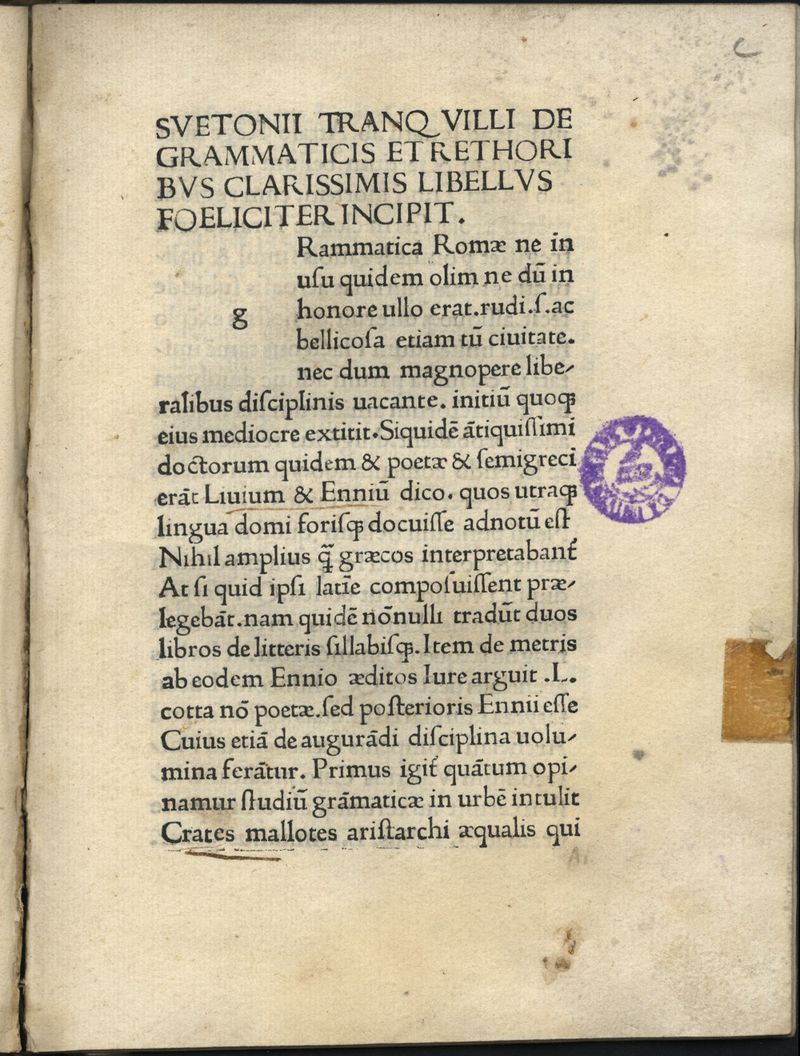 SVETONII TRANQVILLI DE
GRAMMATICIS ET RETHORI
BVS CLARISSIMIS LIBELLVS
FOELICITER INCIPIT.
Rammatica Romæ ne in
uſu quidem olim ne dū in
g honore ullo erat.rudi.ſ.ac
bellicoſa etiam tū ciuitate.
nec dum magnopere libe⸗
ralibus diſciplinis uacante. initiū quoqꝫ
eius mediocre extitit.Siquidē ātiquiſſimi
doctorum quidem & poetæ & ſemigreci
erāt Liuium & Enniū dico. quos utraqꝫ
lingua domi foriſqꝫ docuiſſe adnotū eſt
Nihil amplius q̄ græcos interpretabant᷑
At ſi quid ipſi latīe compoſuiſſent præ⸗
legebāt.nam quidē nōnulli tradūt duos
libros de litteris ſillabiſqꝫ.Item de metris
ab eodem Ennio æditos Iure arguit .L.
cotta nō poetæ.ſed poſterioris Ennii eſſe
Cuius etiā de augurādi diſciplina uolu⸗
mina ferātur. Primus igit᷑ quātum opi⸗
namur ſtudiū grāmaticæ in urbē intulit
Crates mallotes ariſtarchi æqualis qui